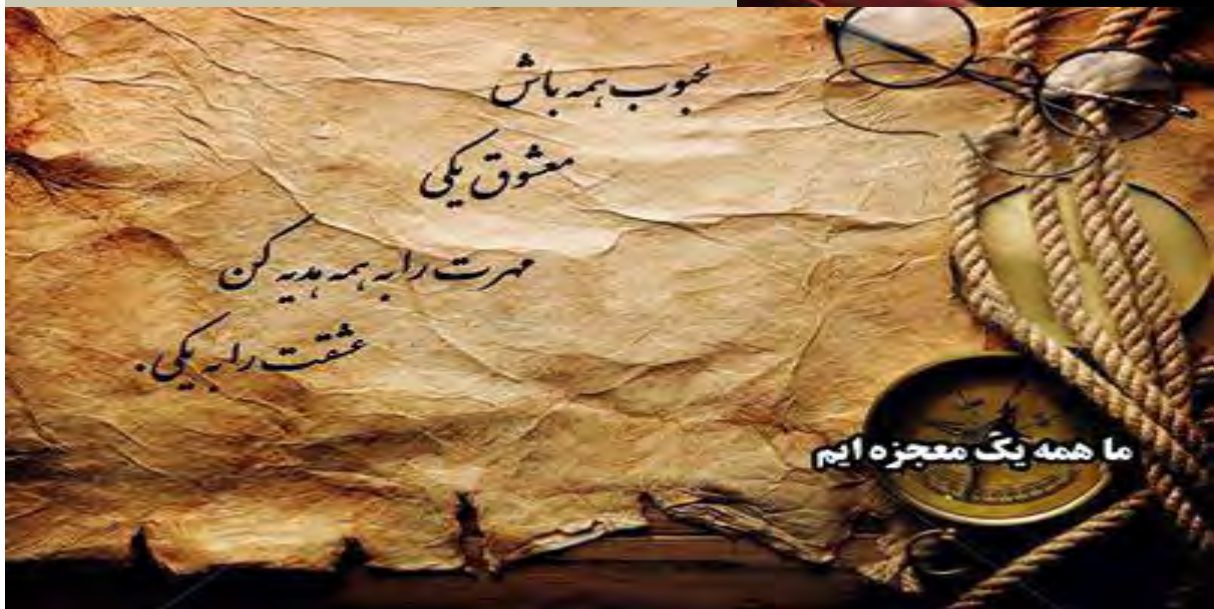 محبوب همه باش
معشوق یکی
مهرت را به همه هدیه کن
عشقت را به یکی.
ما همه یک معجزه ایم